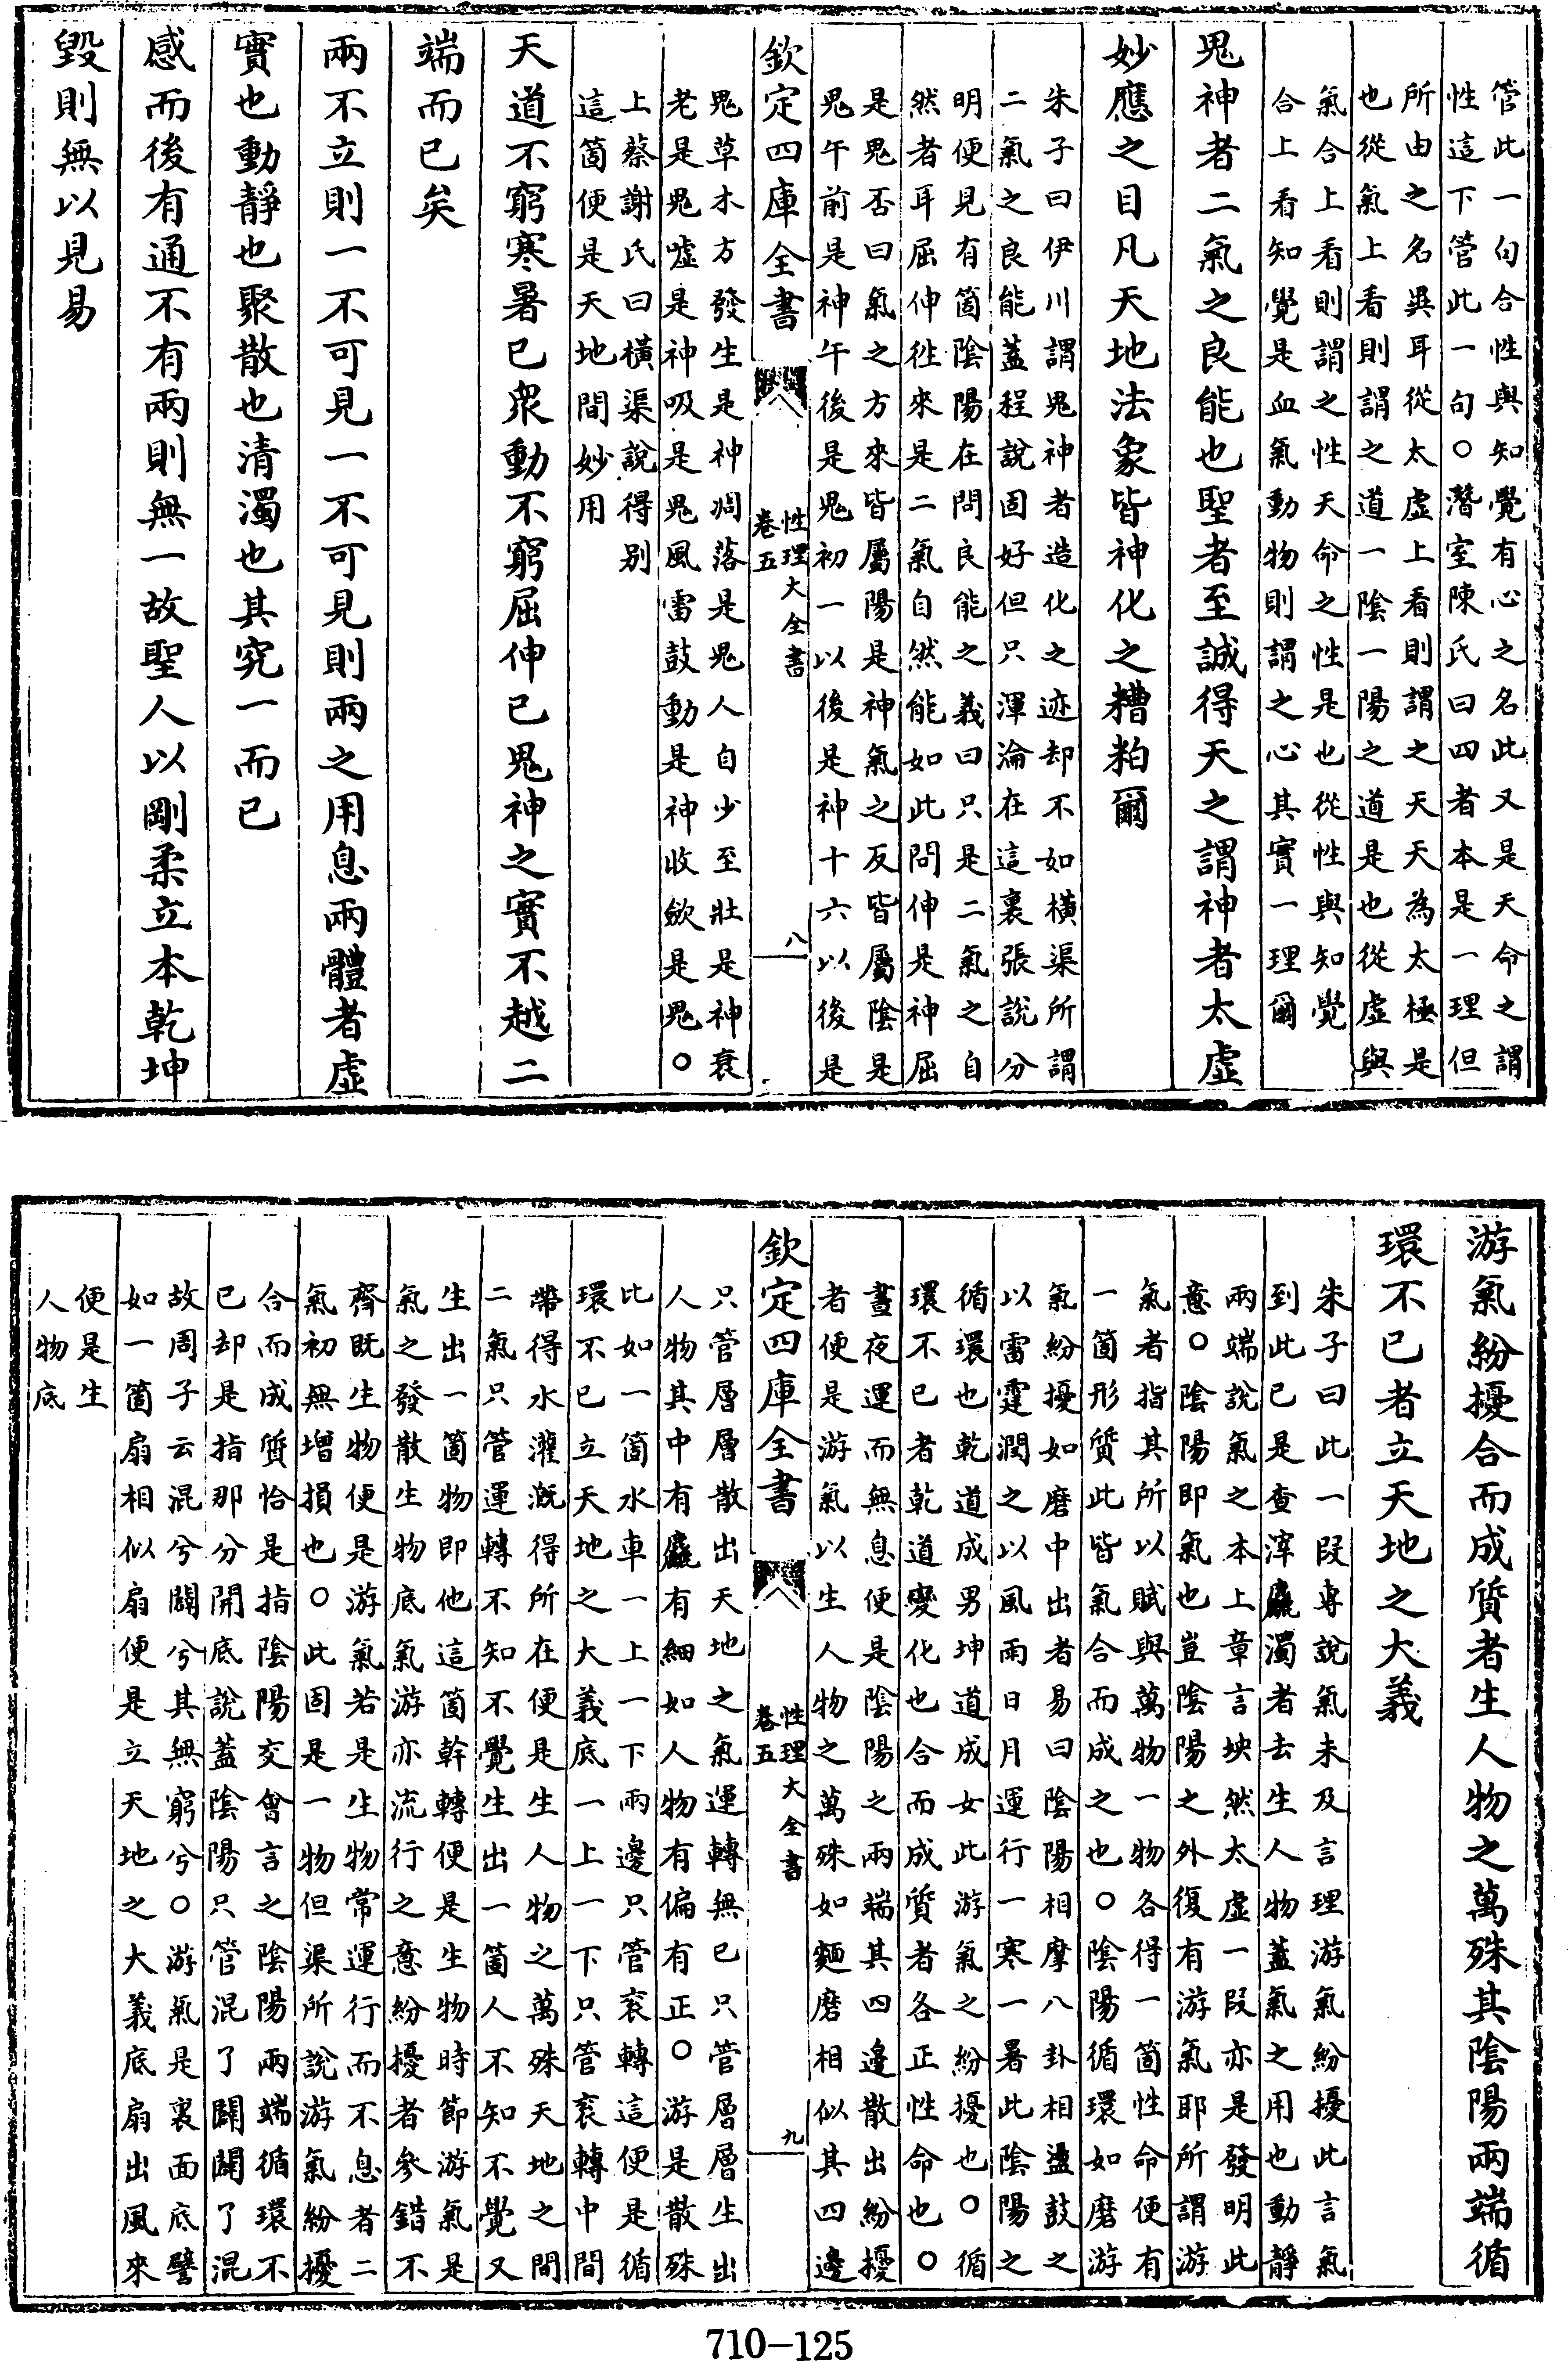 管此一句合性與知覺有心之名此又是天命之謂
性這下管此一句○潛室陳氏曰四者本是一理但
所由之名異耳從太虛上看則謂之天天為太極是
也從氣上看則謂之道一陰一陽之道是也從虛與
氣合上看則謂之性天命之性是也從性與知覺
合上看知覺是血氣動物則謂之心其實一理爾
鬼神者二氣之良能也聖者至誠得天之謂神者太虛
妙應之目凡天地法象皆神化之糟粕爾
朱子曰伊川謂鬼神者造化之迹却不如橫渠所謂
二氣之良能蓋程說固好但只渾淪在這裏張說分
明便見有箇陰陽在問良能之義曰只是二氣之自
然者耳屈伸徃來是二氣自然能如此問伸是神屈
是鬼否曰氣之方來皆屬陽是神氣之反皆屬陰是
鬼午前是神午後是鬼初一以後是神十六以後是
欽定四庫全書
性理大全書
卷五
八
鬼草木方發生是神凋落是鬼人自少至壯是神衰
老是鬼噓是神吸是鬼風雷鼓動是神收斂是鬼○
上蔡謝氏曰橫渠說得別
這箇便是天地間妙用
天道不窮寒暑已衆動不窮屈伸已鬼神之實不越二
端而已矣
兩不立則一不可見一不可見則兩之用息兩體者虛
實也動靜也聚散也清濁也其究一而已
感而後有通不有兩則無一故聖人以剛柔立本乾坤
毀則無以見易
游氣紛擾合而成質者生人物之萬殊其陰陽兩端循
環不已者立天地之大義
朱子曰此一段專說氣未及言理游氣紛擾此言氣
到此已是查滓麤濁者去生人物蓋氣之用也動靜
兩端說氣之本上章言坱然太虛一段亦是發明此
意○陰陽即氣也豈陰陽之外復有游氣耶所謂游
氣者指其所以賦與萬物一物各得一箇性命便有
一箇形質此皆氣合而成之也○陰陽循環如磨游
氣紛擾如磨中出者易曰陰陽相摩八卦相盪鼓之
以雷霆潤之以風雨日月運行一寒一暑此陰陽之
循環也乾道成男坤道成女此游氣之紛擾也○循
環不已者乾道變化也合而成質者各正性命也○
晝夜運而無息便是陰陽之兩端其四邊散出紛擾
者便是游氣以生人物之萬殊如麵磨相似其四邊
欽定四庫全書
性理大全書
卷五
九
只管層層散出天地之氣運轉無已只管層層生出
人物其中有麤有細如人物有偏有正○游是散殊
比如一箇水車一上一下兩邊只管衮轉這便是循
環不已立天地之大義底一上一下只管衮轉中間
帶得水灌溉得所在便是生人物之萬殊天地之間
二氣只管運轉不知不覺生出一箇人不知不覺又
生出一箇物即他這箇幹轉便是生物時節游氣是
氣之發散生物底氣游亦流行之意紛擾者參錯不
齊既生物便是游氣若是生物常運行而不息者二
氣初無增損也○此固是一物但渠所說游氣紛擾
合而成質恰是指陰陽交會言之陰陽兩端循環不
已却是指那分開底說蓋陰陽只管混了闢闢了混
故周子云混兮闢兮其無窮兮○游氣是裏面底譬
如一箇扇相似扇便是立天地之大義底扇出風來
便是生
人物底
710—125